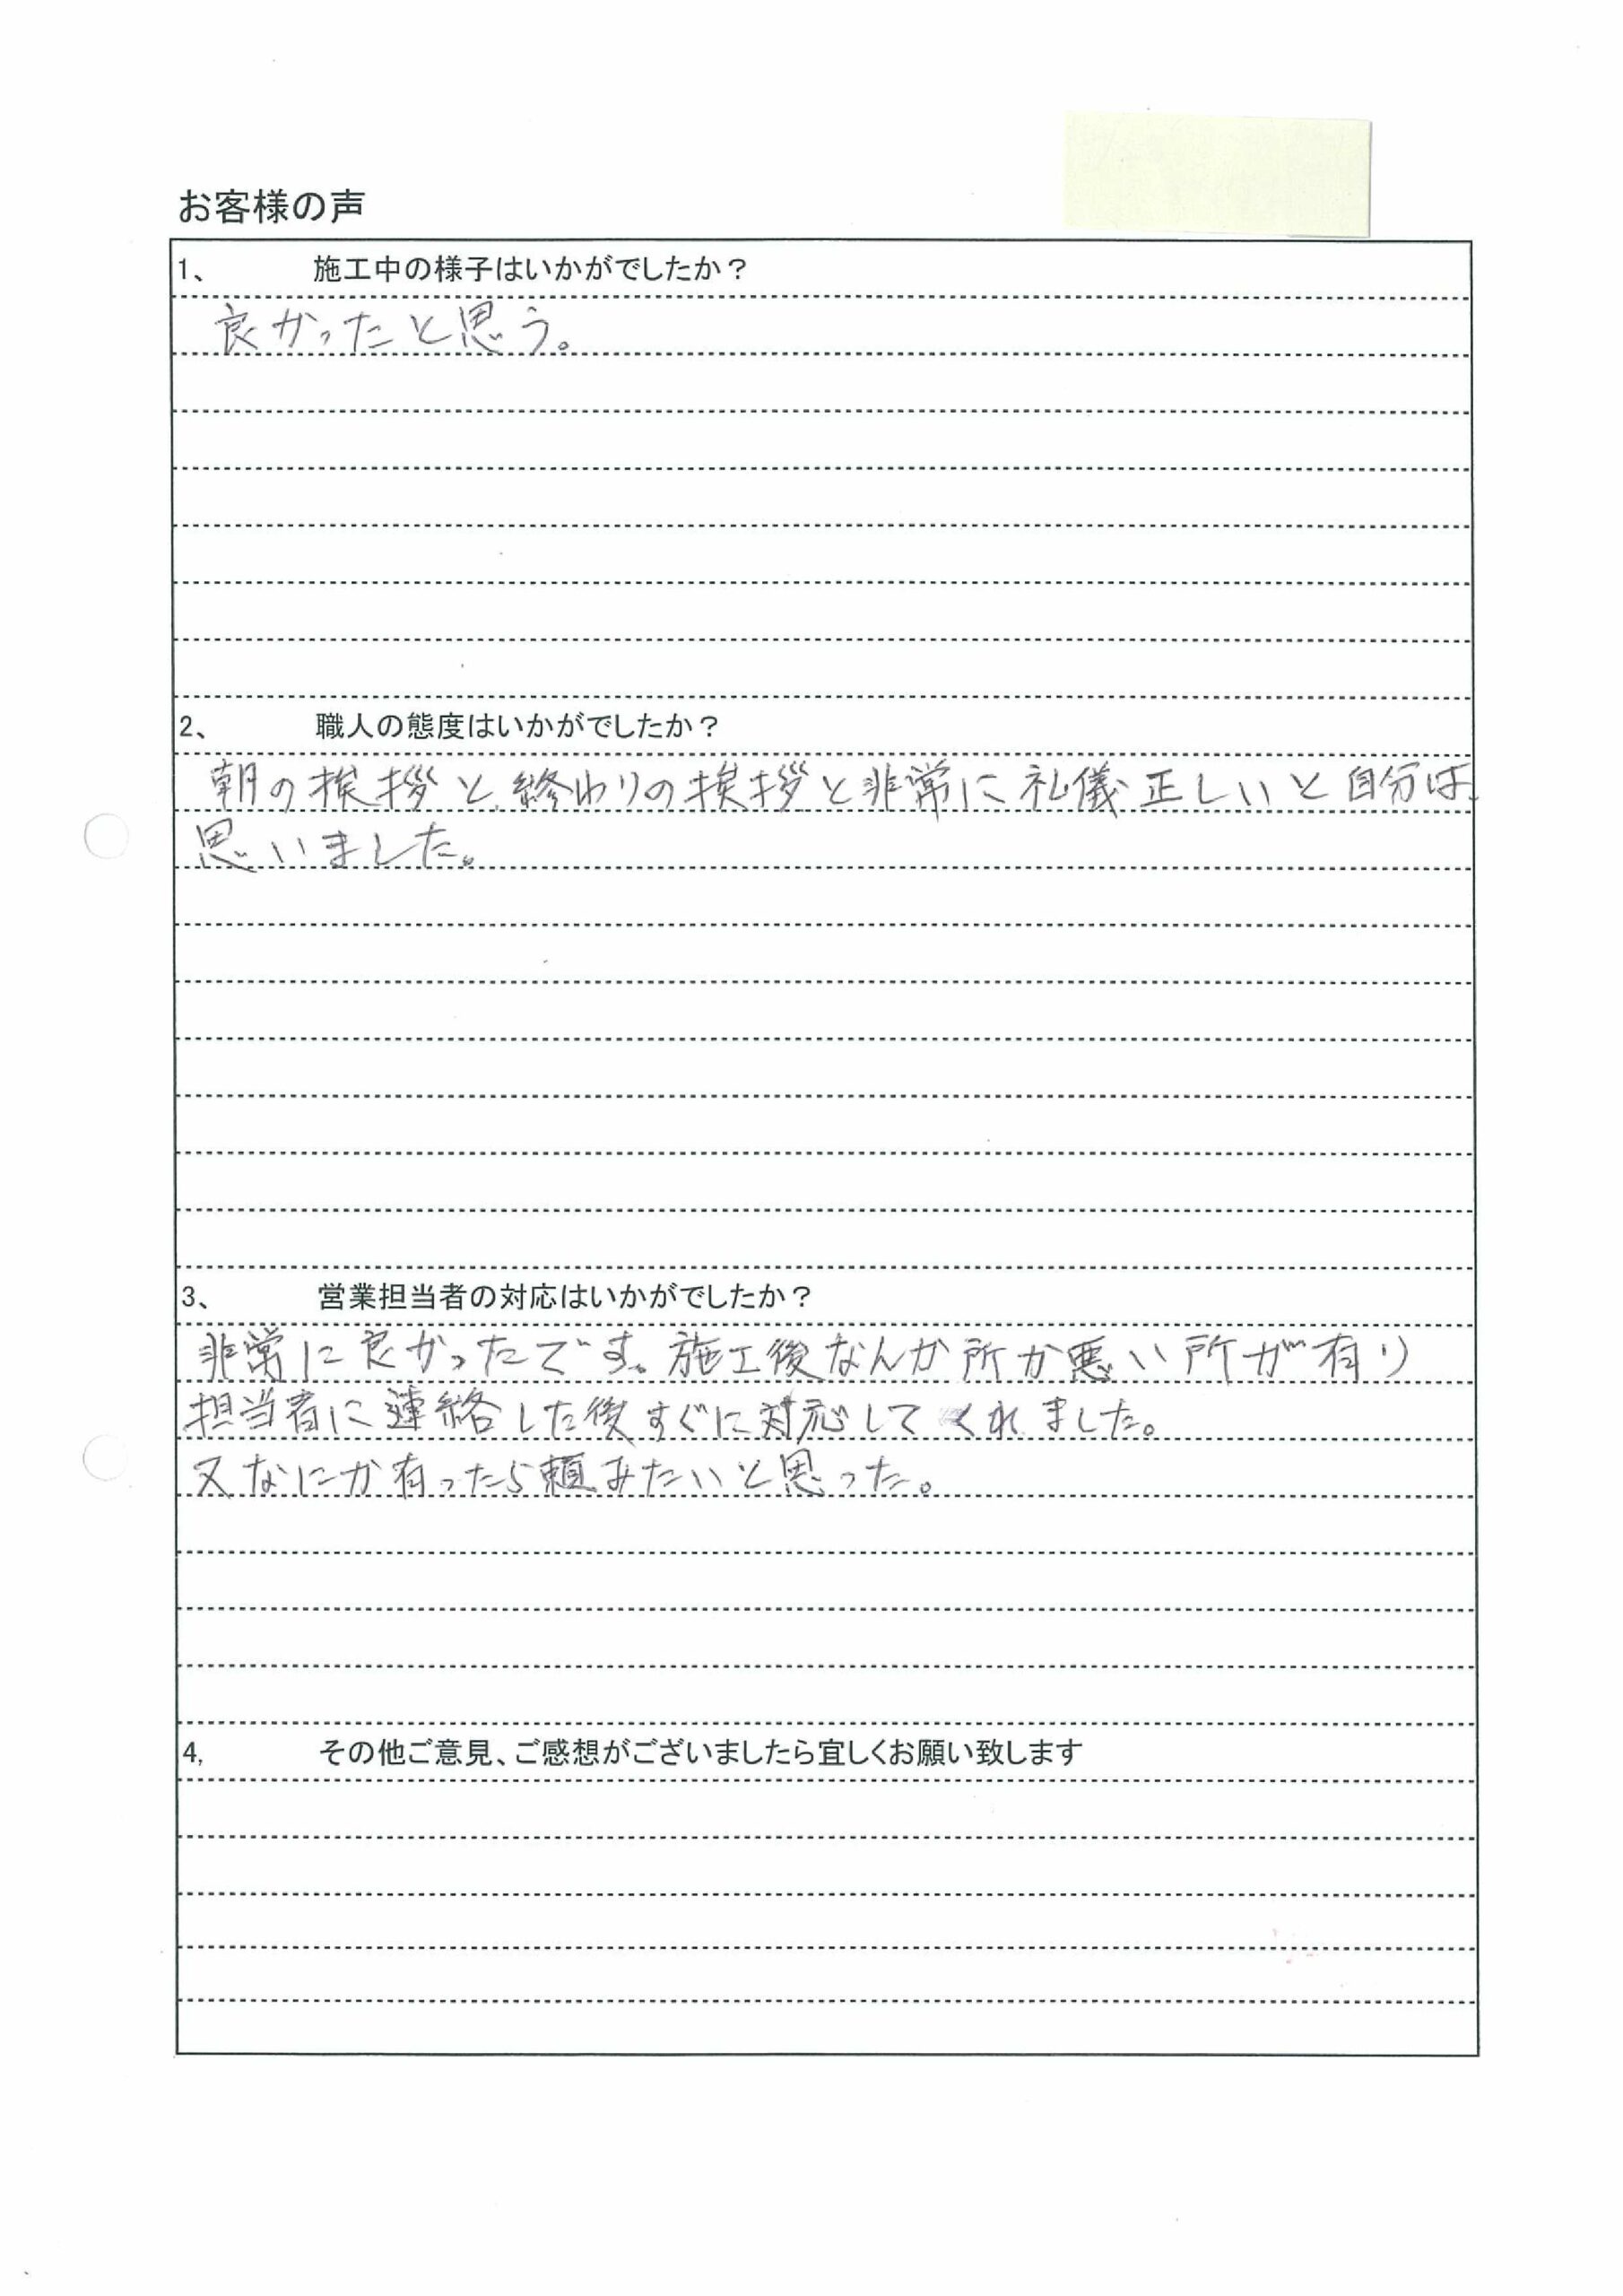 お客様の声
1、 施工中の様子はいかがでしたか？
良かったと思う。
2、 職人の態度はいかがでしたか？
朝の挨拶と終わりの挨拶と非常に礼儀正しいと自分は
思いました。
3、 営業担当者の対応はいかがでしたか？
非常に良かったです。施工後なんか所か悪い所が有り
担当者に連絡した後すぐに対応してくれました。
又なにか有ったら頼みたいと思った。
4, その他ご意見、ご感想がございましたら宜しくお願い致します